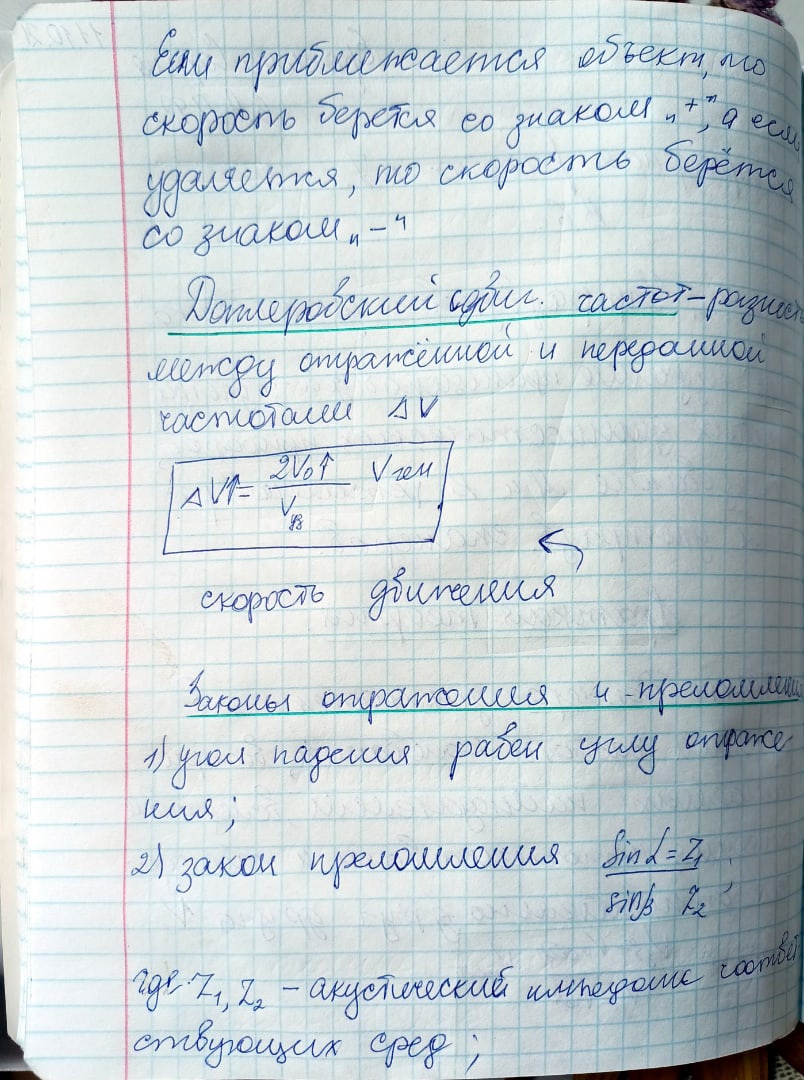 Если приближается объект, то
скорость берется со знаком „+", а если
удаляется, то скорость берётся
со знаком „-"
Доплеровский сдвиг. частот - разность
между отражённой и переданной
частотами ΔV
ΔV = 2V₀ / V V ген
скорость движения
Законы отражения и преломления
1) угол падения равен углу отраже
ния;
2) закон преломления sin α / sin β = Z₁ / Z₂ ;
где Z₁, Z₂ - акустический импеданс соответ
ствующих сред;